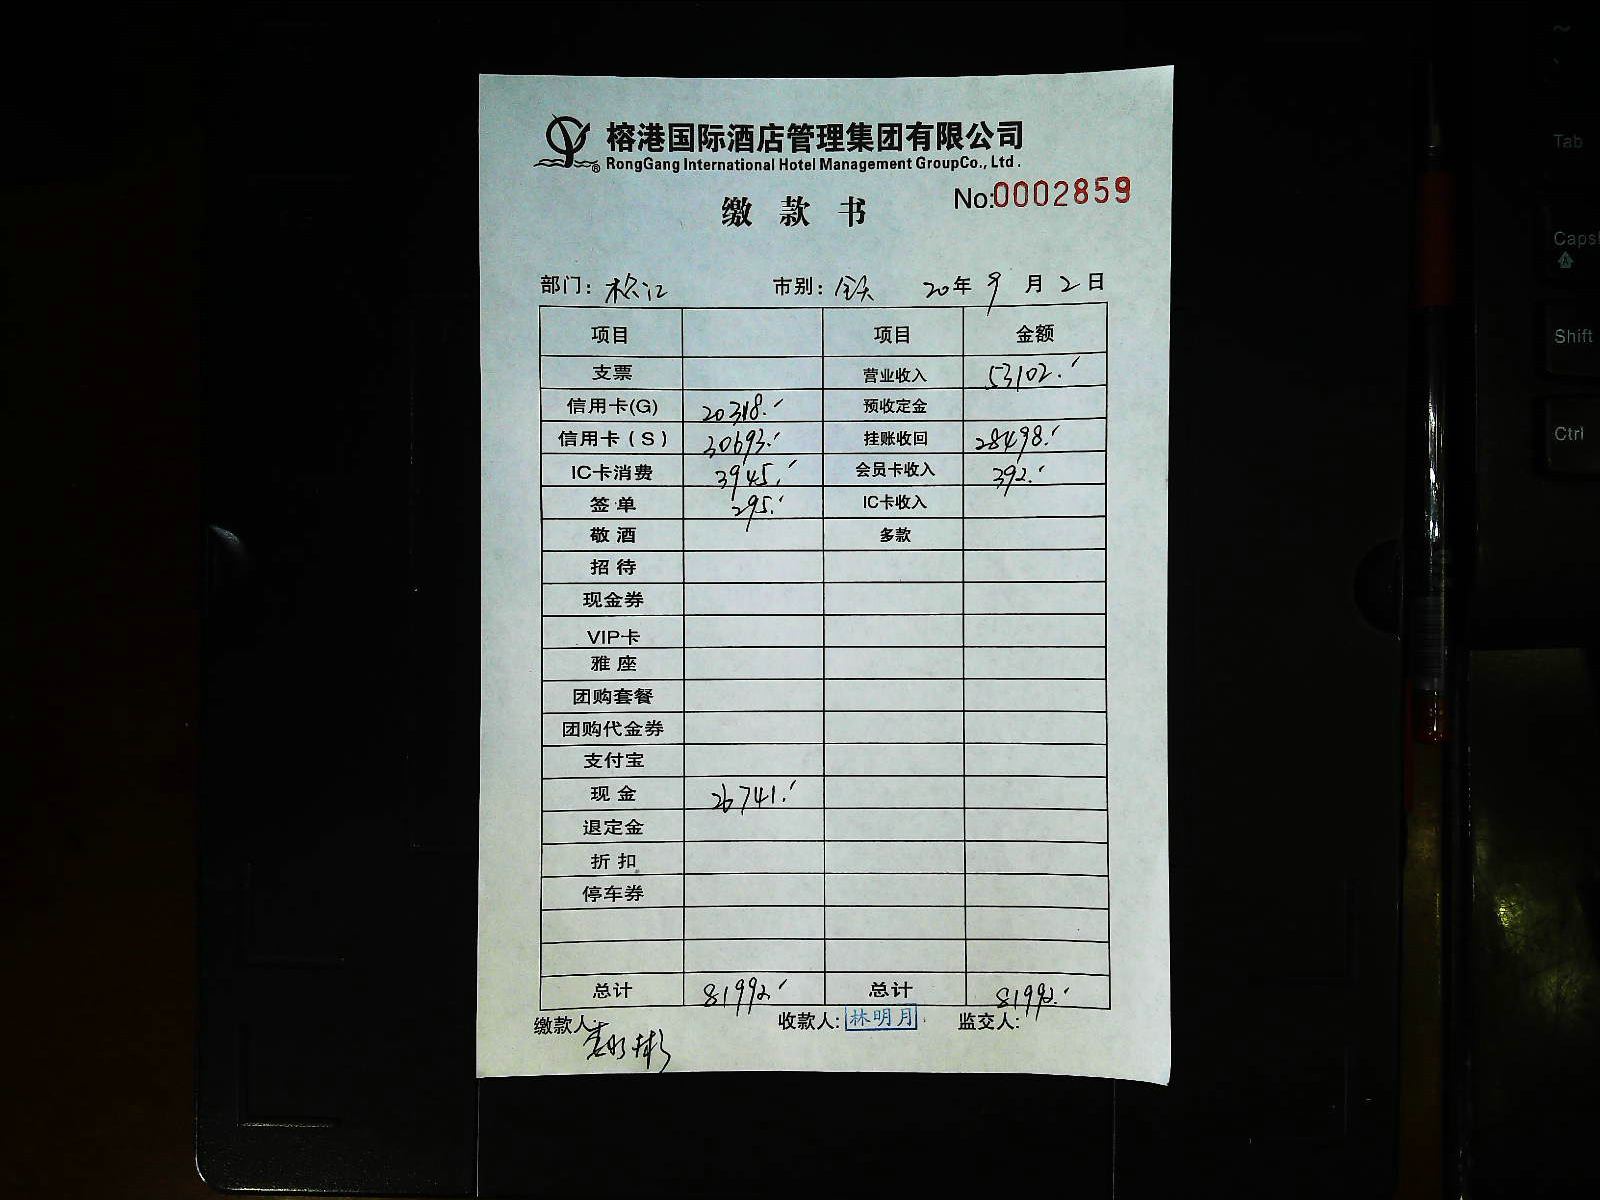 榕港国际酒店管理集团有限公司
RongGang International Hotel Management GroupCo., Ltd.
缴款书
No:0002859
部门: 市别: 全天 20年 9月 2日
项目 项目 金额
支票 营业收入 53102.
信用卡(G) 20318. 预收定金
信用卡(S) 30693. 挂账收回 28498.
IC卡消费 3945. 会员卡收入 392.
签单 295. IC卡收入
敬酒 多款
招待
现金券
VIP卡
雅座
团购套餐
团购代金券
支付宝
现金 26741.
退定金
折扣
停车券
总计 81992 总计 81992.
缴款人: 收款人: 林明月 监交人:
Tab
Caps
Shift
Ctrl